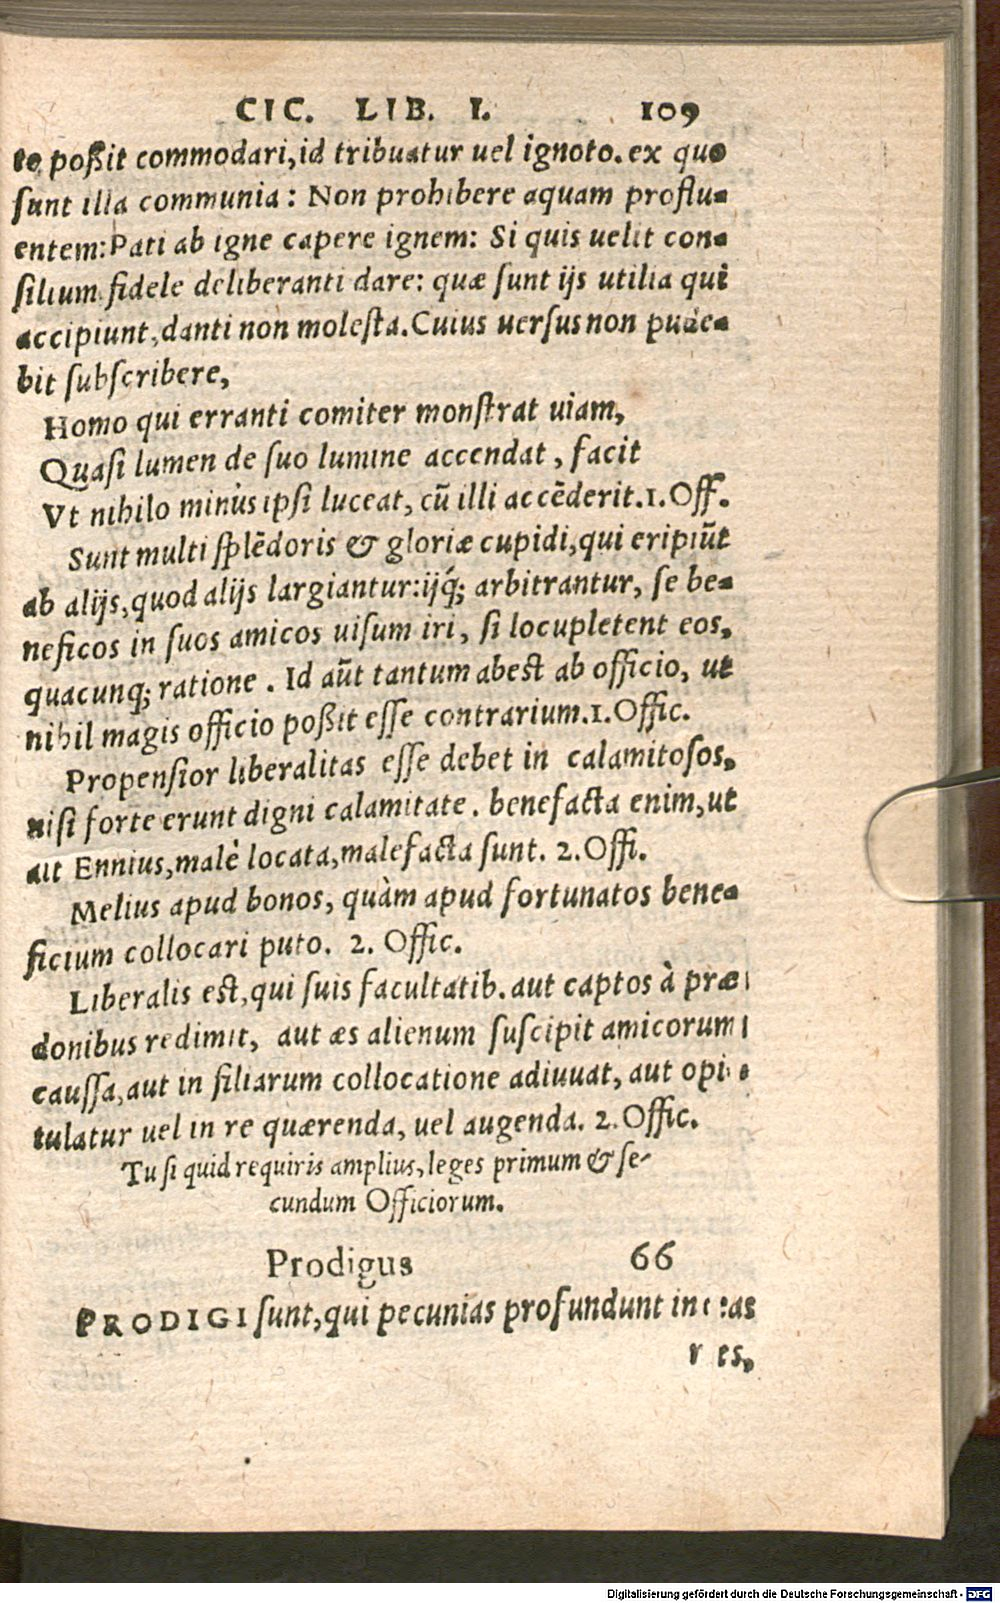 CIC. LIB. I. 109
to poßit commodari, id tribuatur uel ignoto. ex quo
sunt illa communia: Non prohibere aquam proflu-
entem: Pati ab igne capere ignem: Si quis uelit con-
silium fidele deliberanti dare: quæ sunt ijs utilia qui
accipiunt, danti non molesta. Cuius uersus non pude-
bit subscribere,
Homo qui erranti comiter monstrat uiam,
Quasi lumen de suo lumine accendat, facit
Vt nihilo minùs ipsi luceat, cū illi accēderit. 1. Off.
Sunt multi splēdoris & gloriæ cupidi, qui eripiūt
ab alijs, quod alijs largiantur: ijq́; arbitrantur, se be-
neficos in suos amicos uisum iri, si locupletent eos,
quacunq; ratione. Id aūt tantum abest ab officio, ut
nihil magis officio poßit esse contrarium. 1. Offic.
Propensior liberalitas esse debet in calamitosos,
nisi forte erunt digni calamitate. benefacta enim, ut
ait Ennius, malè locata, malefacta sunt. 2. Offi.
Melius apud bonos, quàm apud fortunatos bene-
ficium collocari puto. 2. Offic.
Liberalis est, qui suis facultatib. aut captos à præ
donibus redimit, aut æs alienum suscipit amicorum
caussa, aut in filiarum collocatione adiuuat, aut opi-
tulatur uel in re quærenda, uel augenda. 2. Offic.
Tu si quid requiris amplius, leges primum & se-
cundum Officiorum.
Prodigus 66
PRODIGI sunt, qui pecunias profundunt in eas
res,
Digitalisierung gefördert durch die Deutsche Forschungsgemeinschaft - DFG